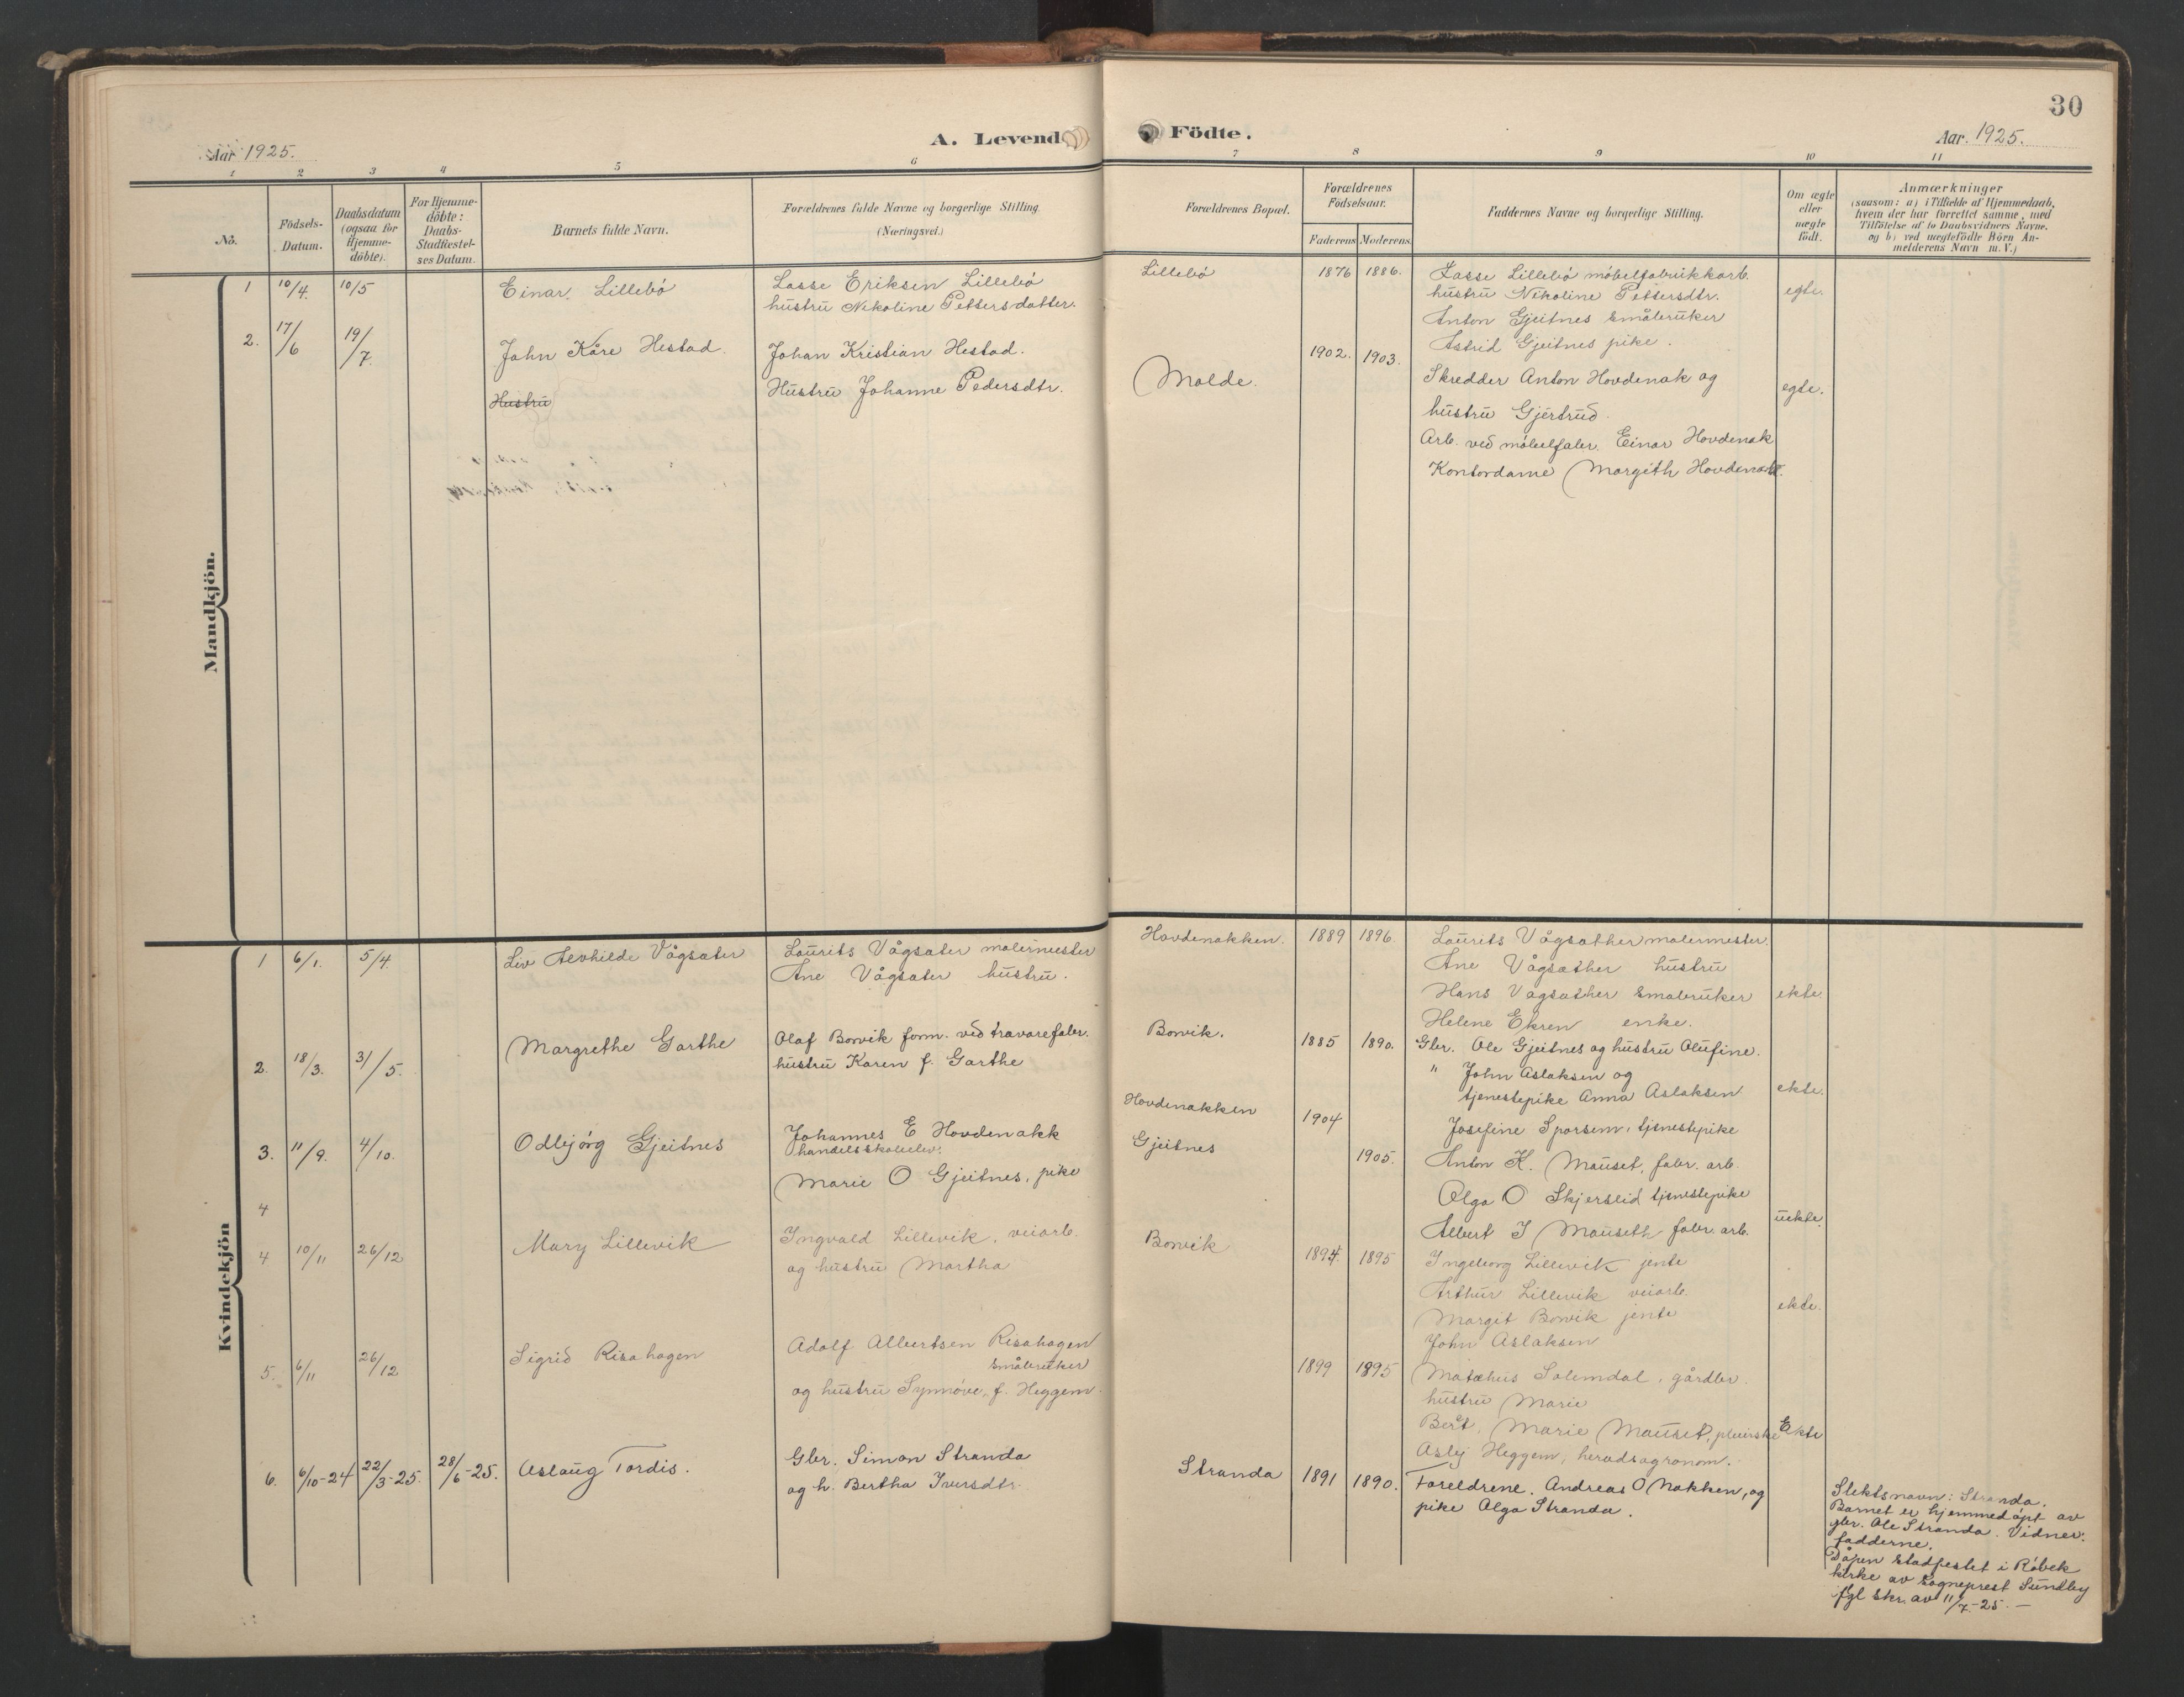 30
Aar 1925.
A. Levende
Födte.
Aar. 1925.
1 2 3 4 5 6 7 8 9 10 11
No.
Födsels-
Datum.
Daabsdatum
(ogsaa for
Hjemme-
döbte).
For Hjemme-
döbte:
Daabs-
Stadfæstel-
ses Datum.
Barnets fulde Navn.
Forældrenes fulde Navne og borgerlige Stilling.
(Næringsvei.)
Forældrenes Bopæl.
Forældrenes
Födselsaar.
Faderens Moderens
Faddernes Navne og borgerlige Stilling.
Om ægte
eller
uægte
födt.
Anmærkninger
(saasom: a) i Tilfælde af Hjemmedaab,
hvem der har forrettet samme, med
Tilföielse af to Daabsvidners Navne.
og b) ved uægtefödte Börn An-
melderens Navn m. V.)
Mandkjön.
1 10/4. 10/5 Einar. Lillebó
Lasse Eriksen Lillebó
hustru Nikoline Pettersdatter.
Lillebó 1876 1886.
Lasse Lillebó móbelfabrikkarb.
hustru Nikoline Pettersdtr.
Anton Gjeitnes småbruker
Astrid Gjeitnes pike.
egte.
2. 17/6 19/7. John Kåre Hestad.
Hustru
Johan Kristian Hestad.
Hustru Johanne Pedersdtr.
Molde. 1902. 1903.
Skredder Anton Hovdenak og
hustru Gjertrud.
Arb. ved móbelfabr. Einar Hovdenak
Kontordame Margith Hovdenak.
egte.
Kvindekjön
1 6/1. 5/4. Liv Alvhilde Vågsæter
Laurits Vågsæter malermester
Ane Vågsæter hustru.
Hovdenakken. 1889 1896.
Laurits Vågsæther malermester.
Ane Vågsæther hustru
Hans Vagsæther småbruker
Helene Ekren enke.
ekte.
2. 18/3. 31/5. Margrethe Garthe
Olaf Borvik form. ved trævarefabr.
hustru Karen f. Garthe
Borvik. 1885 1890.
Gbr. Ole Gjeitnes og hustru Olufine.
" John Aslaksen og
tjenestepike Anna Aslaksen
ekte.
3. 11/9. 4/10. Odbjórg Gjeitnes
Johannes E Hovdenakk
handelsskoleelev.
Marie O Gjeitnes, pike
Hovdenakken 1904
Gjeitnes 1905.
Josefine Sporsem, tjenestepike
Anton K. Mauset, fabr. arb.
Olga O Skjerslid tjenestepike
Albert I Mauseth fabr. arb.
uekte.
4
4 10/11 26/12 Mary Lillevik
Ingvald Lillevik, veiarb.
og hustru Martha
Borvik 1894. 1895
Ingeborg Lillevik jente
Arthur Lillevik veiarb.
Margit Borvik jente
John Aslaksen
ekte.
5. 6/11 26/12 Sigrid Risahagen
Adolf Albertsen Risahagen
småbruker
og hustru Synnóve, f. Heggem.
1899 1895
Matæhus Solemdal, gårdbr.
hustru Marie
Marie Mauset,
Asbj Heggem, herredsagronom.
Ekte
6. 6/10-24 22/3-25. 28/6-25. Aslaug Tordis.
Gbr. Simon Stranda
og h. Bertha Iversdtr.
Stranda 1891 1890.
Foreldrene. Andreas O Nakken, og
pike Olga Stranda.
Slektsnavn: Stranda.
Barnet er hjemmedópt av
gbr. Ole Stranda. Vidner:
fadderne.
Dåpen stadfestet i Róbek
kirke av sogneprest Sundby
ifgl skr. av 11/7-25. —